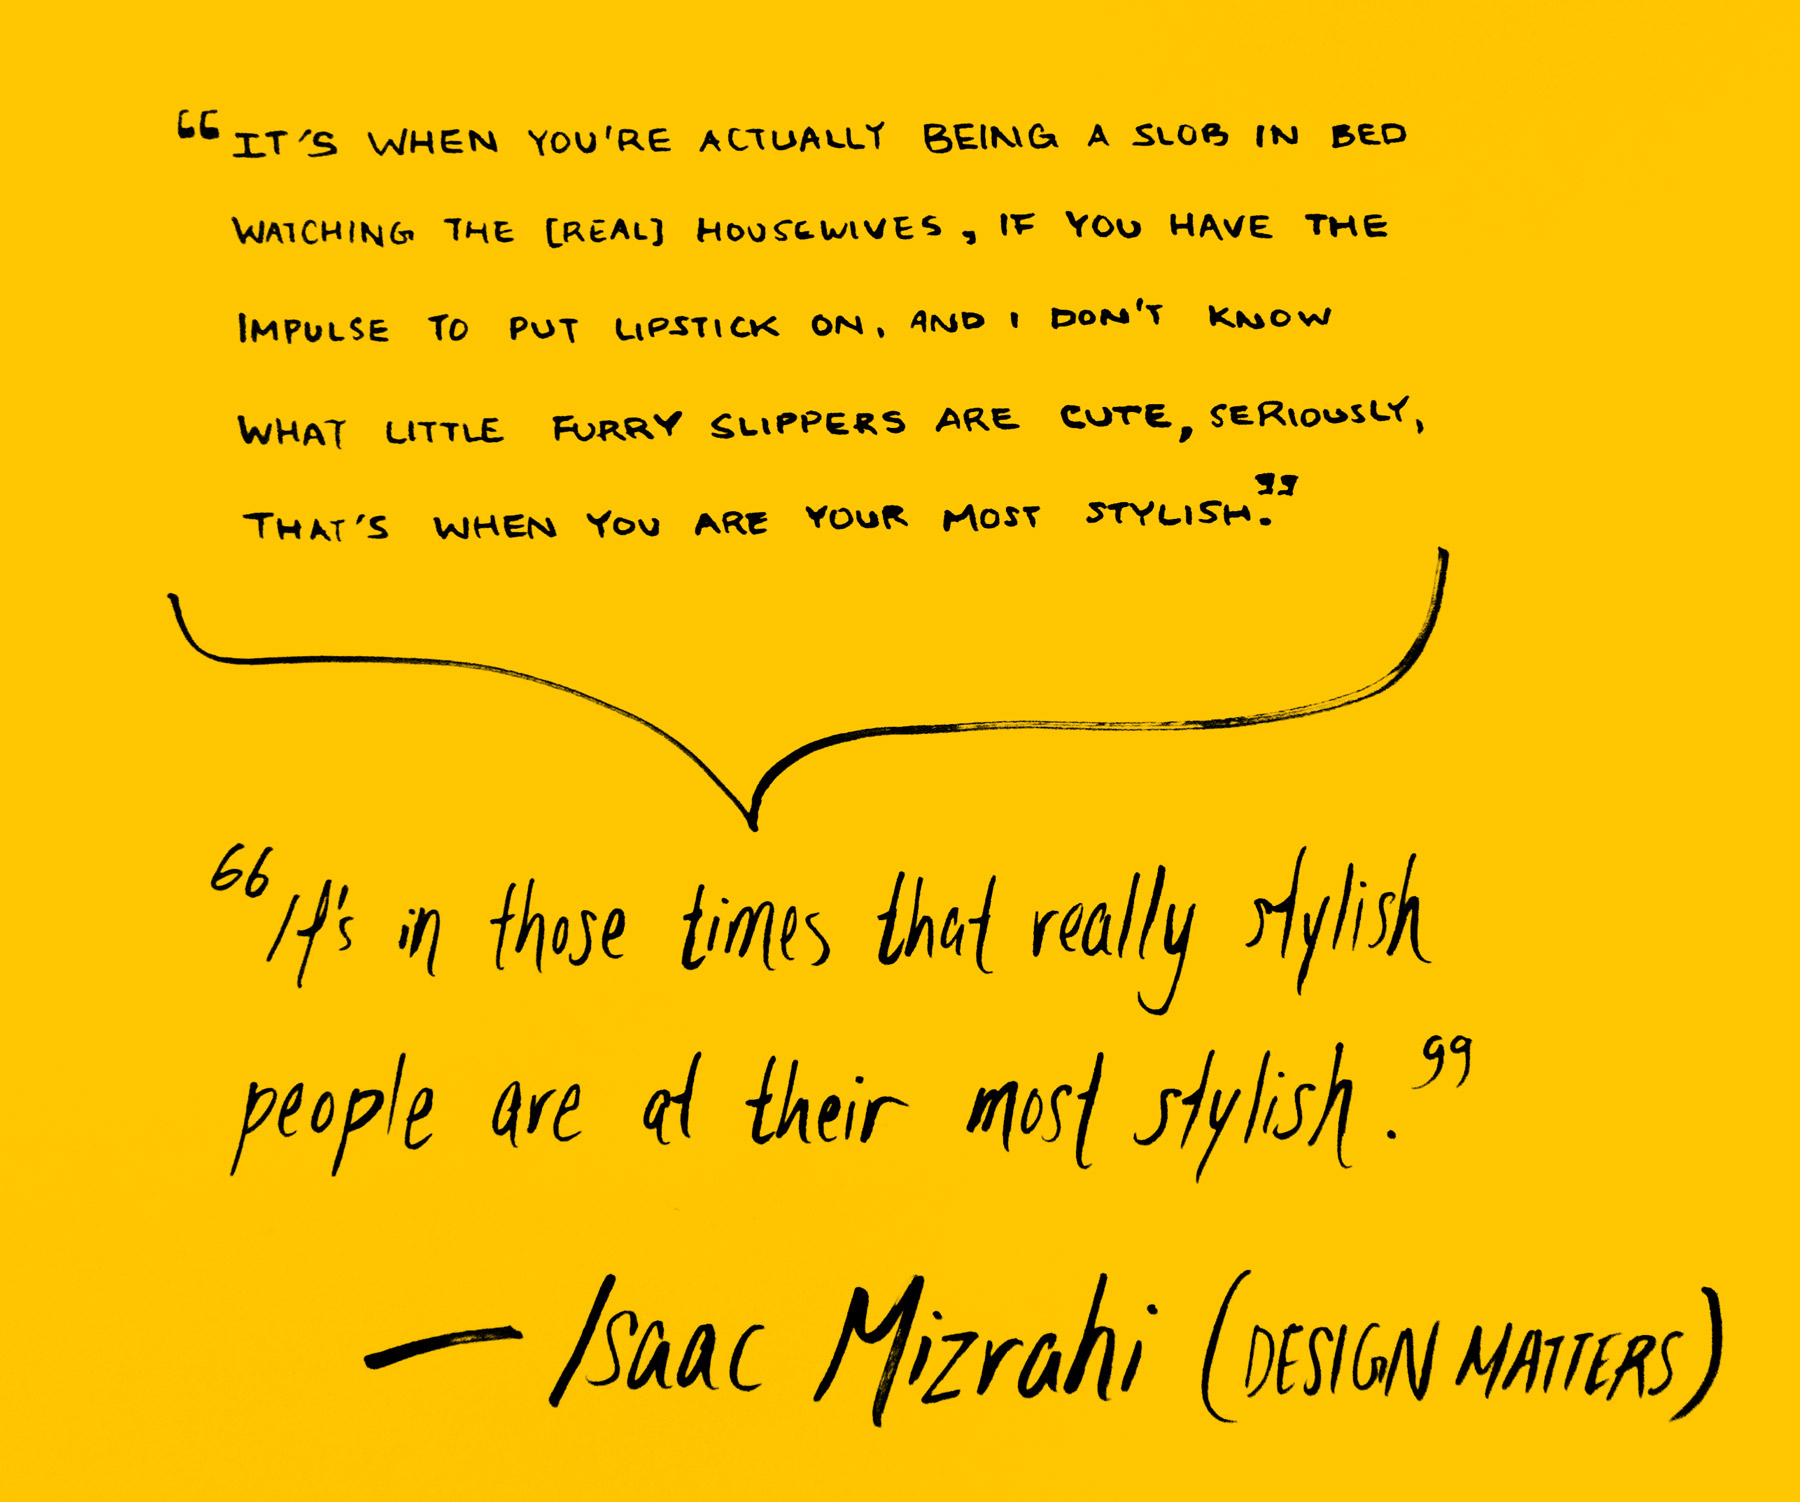 “IT'S WHEN YOU'RE ACTUALLY BEING A SLOB IN BED
WATCHING THE [REAL] HOUSEWIVES, IF YOU HAVE THE
IMPULSE TO PUT LIPSTICK ON, AND I DON'T KNOW
WHAT LITTLE FURRY SLIPPERS ARE CUTE, SERIOUSLY,
THAT'S WHEN YOU ARE YOUR MOST STYLISH.”
“It's in those times that really stylish
people are at their most stylish.”
— Isaac Mizrahi (DESIGN MATTERS)